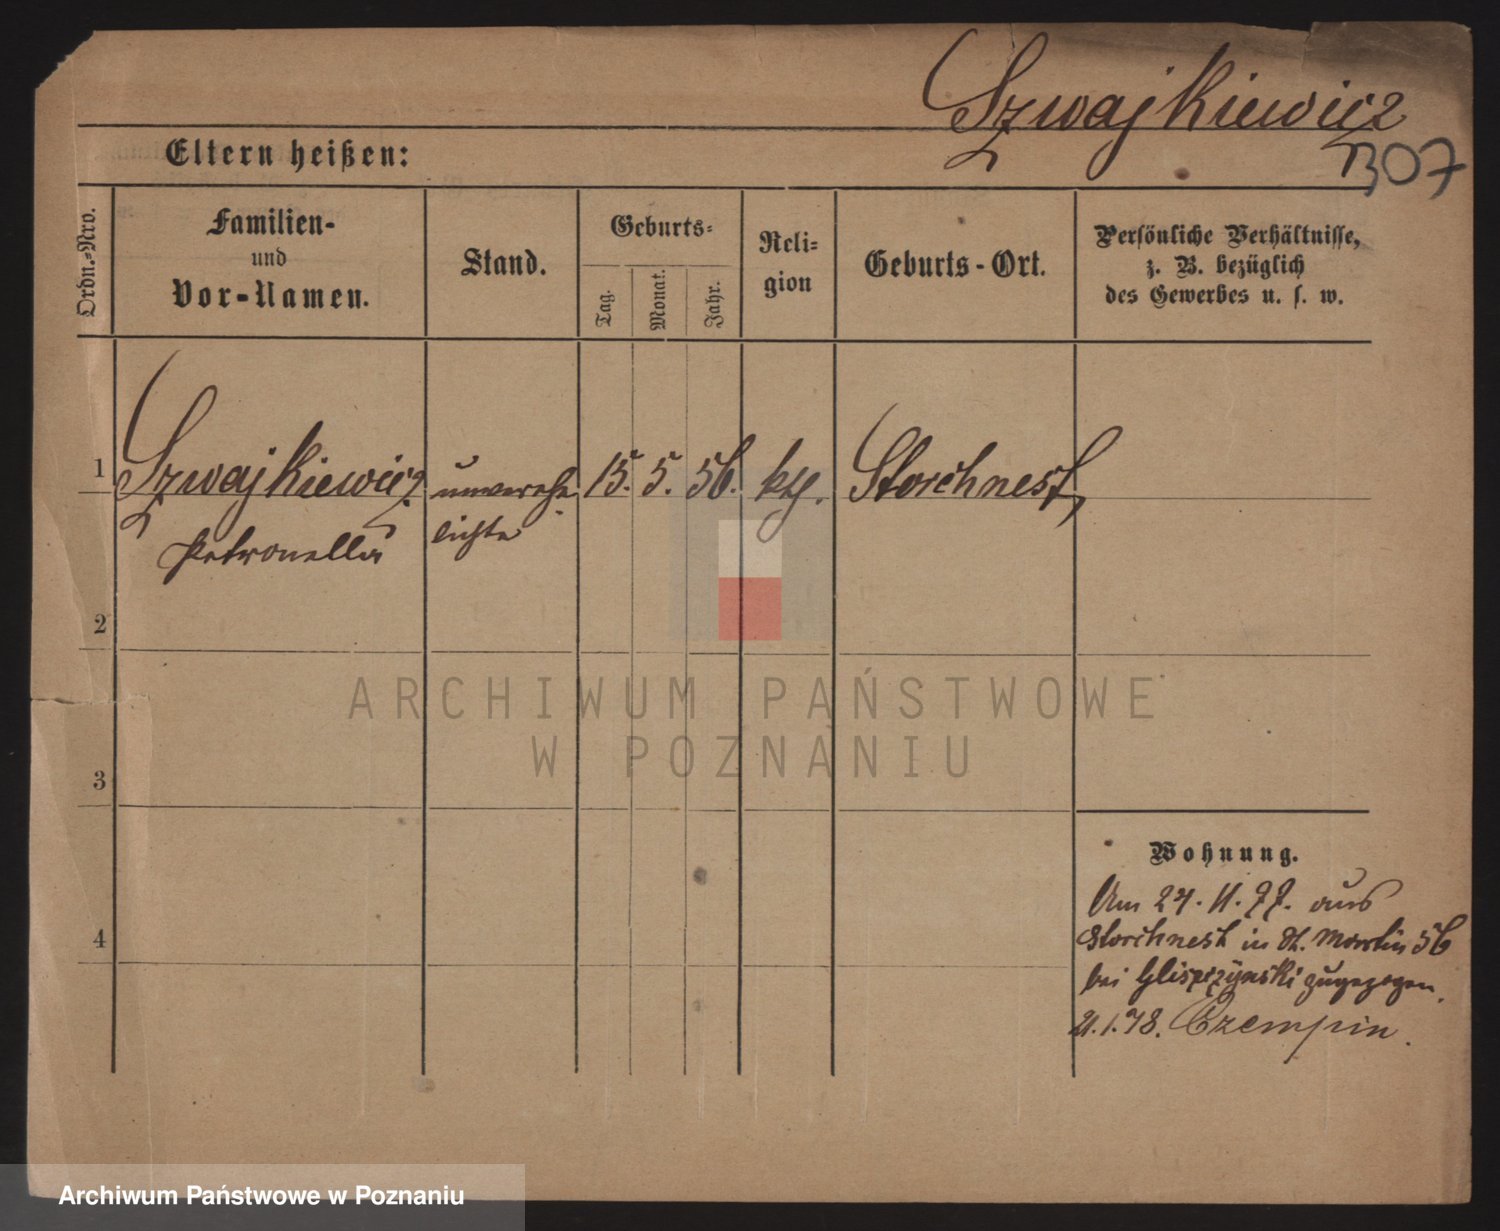 Szwajkiewicz
307
Eltern heißen:
Ordn.-Nro.
Familien-
und
Vor-Namen.
Stand.
Geburts-
Tag.
Monat.
Jahr.
Reli-
gion
Geburts-Ort.
Persönliche Verhältnisse,
z. B. bezüglich
des Gewerbes u. s. w.
1 Szwajkiewicz unverehe- 15. 5. 56. kth. Storchnest,
Petronella lichte
2
ARCHIWUM PAŃSTWOWE
W POZNANIU
3
Wohnung.
Am 24. 11. 77. aus
Storchnest in St. Martin 56
bei zugezogen.
21.1.78. Czempin.
4
Archiwum Państwowe w Poznaniu